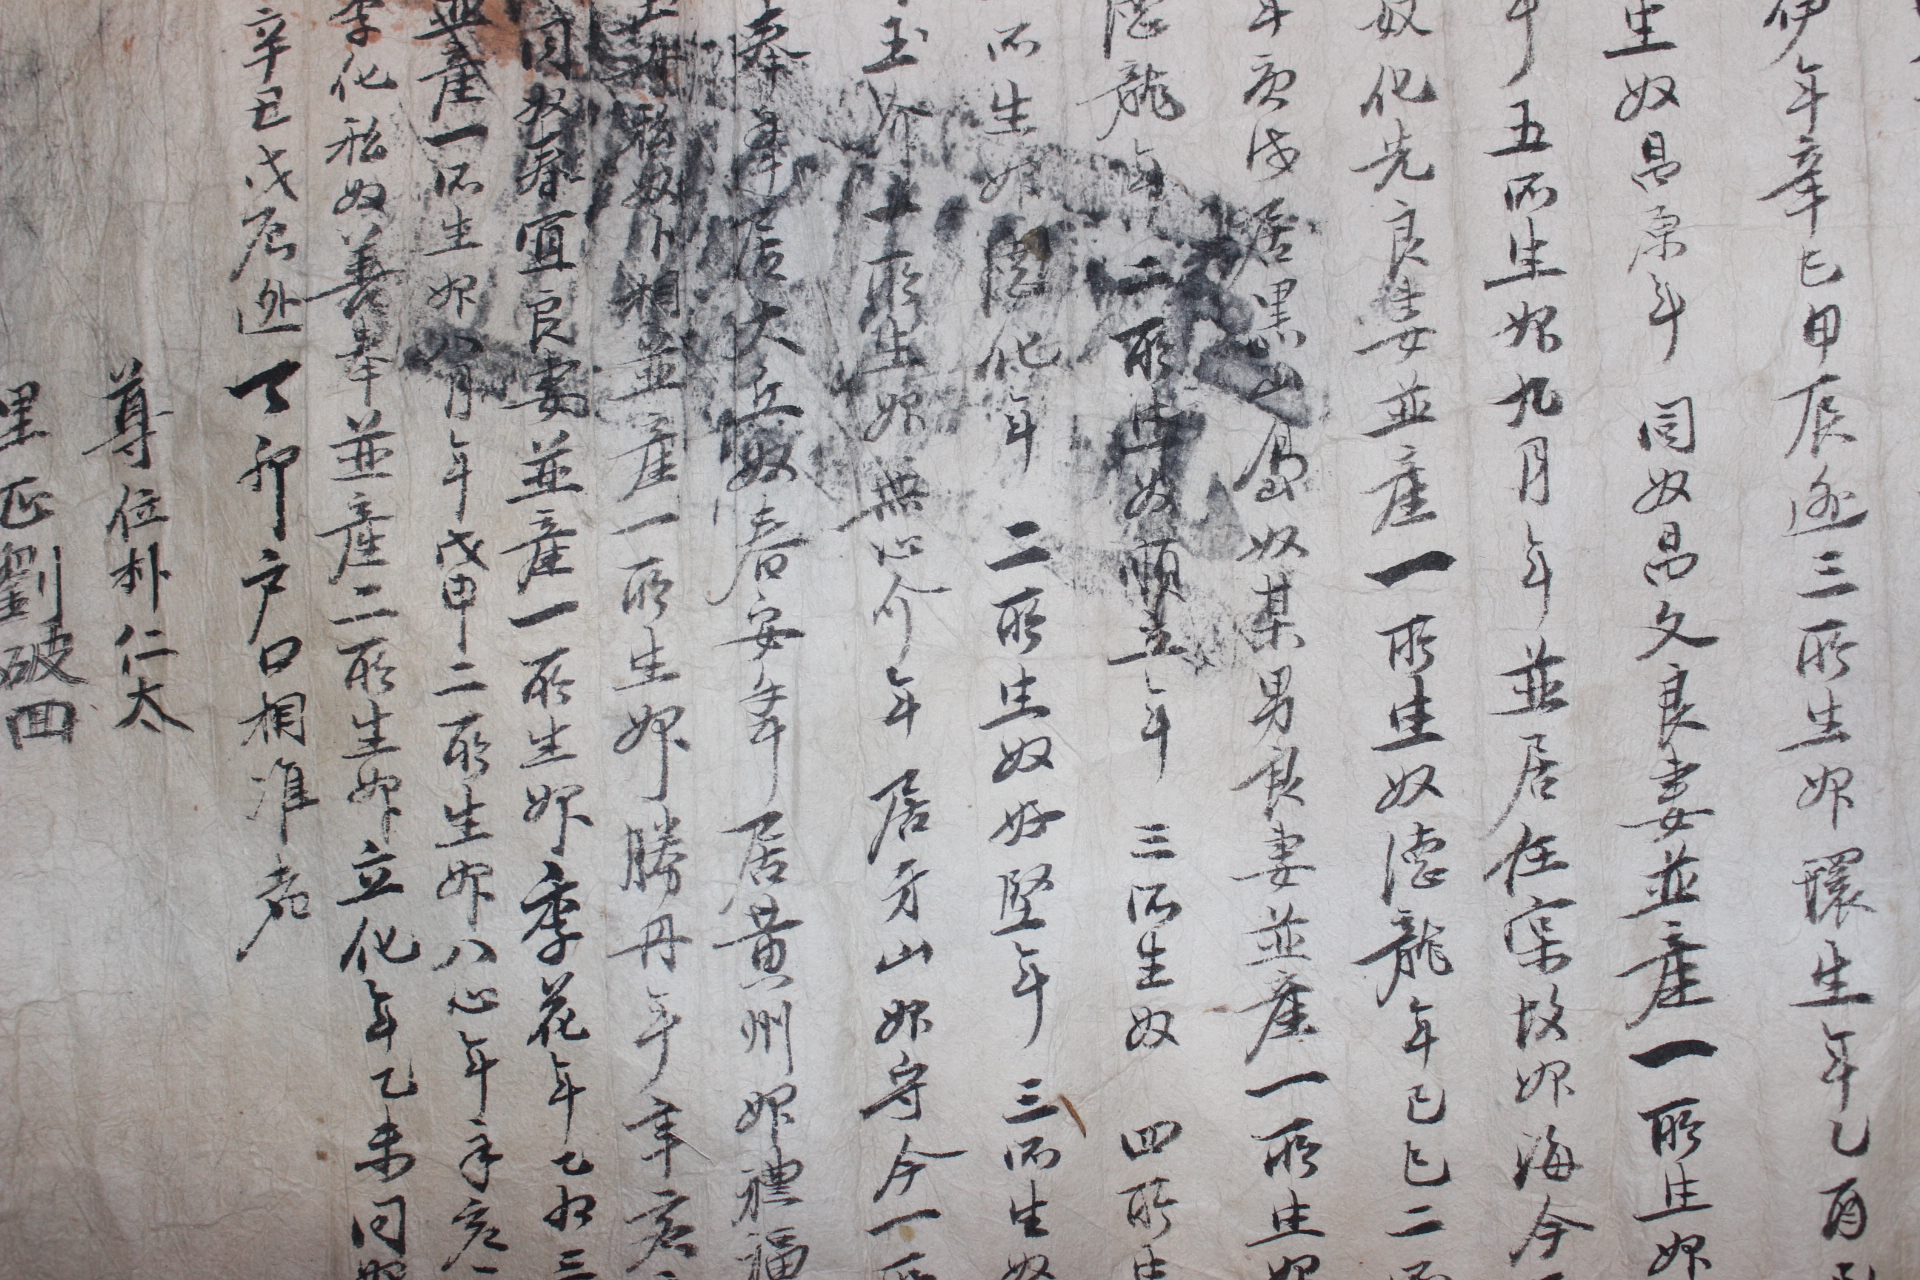 年辛巳甲辰逃三所生婢環生年乙酉
生奴昌原年 同奴昌文良妻並産一所生婢
年五所生婢九月年並居任窠故婢海今
奴化先良妻並産一所生奴德龍年已巳二所
年庚戌居黑山島奴某男良妻並産一所生婢
德龍年 二所生奴順立年 三所生奴 四所生
所生婢 化年 二所生奴好堅年 三所生奴
玉介十所生婢無心介年 居牙山婢守今一所
奉年 居大丘奴春安年 居黃州婢禮福
丹私奴卜相並産一所生婢勝丹年辛亥
同奴春宜良妻並産一所生婢季花年乙 三
並産一所生婢八月年戊申二所生婢八心年辛亥
李化私奴善奉並産二所生婢立化年乙未同婢
辛丑戊辰逃丁卯戶口相准者
尊位朴仁太
里正劉破回